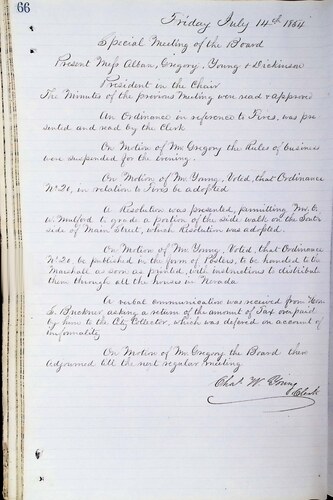 66
Friday July 14th 1864
Special Meeting of the Board
Present Mess Alban, Gregory, Young & Dickinson
President in the Chair
The Minutes of the previous Meeting were read & approved
An Ordinance in reference to Fires, was pre-
sented and read by the Clerk
On Motion of Mr Gregory the Rules of business
were suspended for the evening.
On Motion of Mr Young, Voted, that Ordinance
No 20, in relation to Fires be adopted
A Resolution was presented, permitting Mr.
W Mulford to grade a portion of the side walk on the South
side of Main Street, which Resolution was adopted.
On Motion of Mr Young, Voted, that Ordinance
No 20, be published in the form of Posters, to be handed to the
Marshall as soon as printed, with instructions to distribute
them through all the houses in Nevada
A verbal communication was received from
Buckner asking a return of the amount of Tax over paid
by him to the City Collector, which was defered on account of
informality
On Motion of Mr Gregory the Board then
adjourned till the next regular meeting
Chas W Young
Clerk